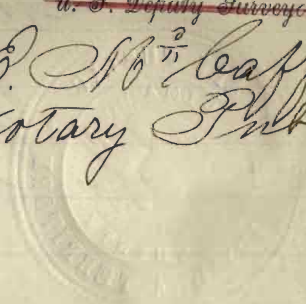 U. S. Deputy Surveyo
E. McCaf
otary Pub